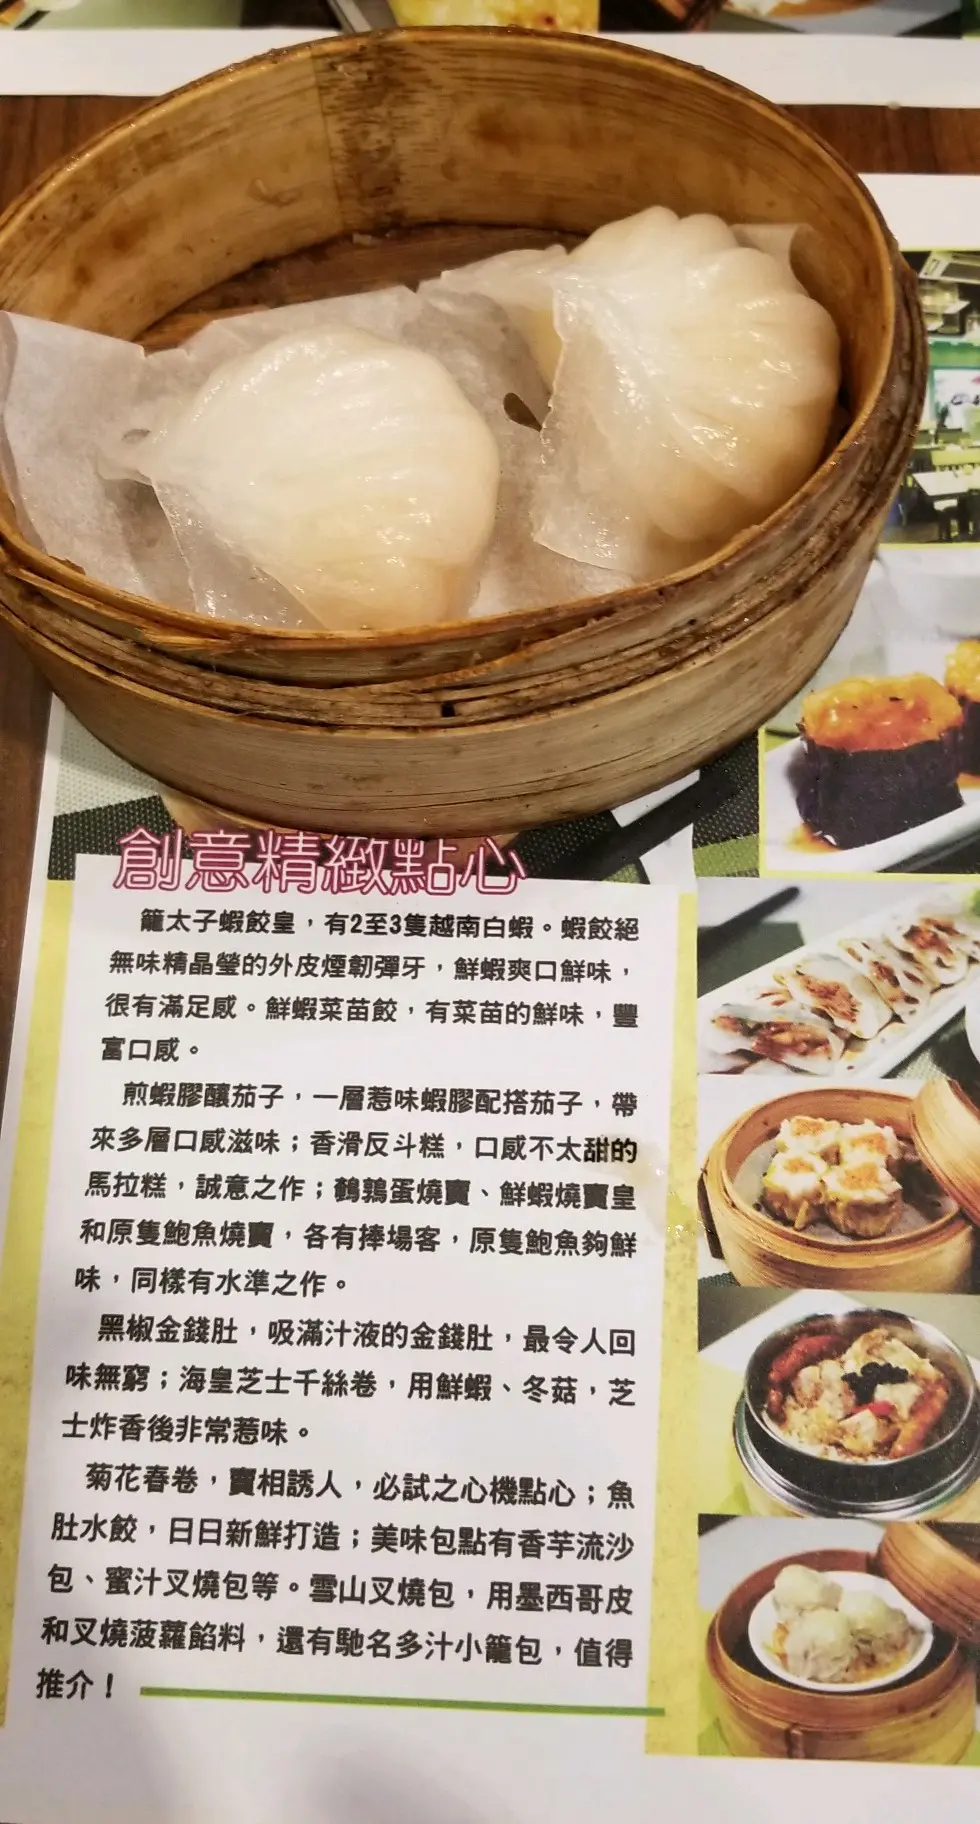 創意精緻點心
籠太子蝦餃皇，有2至3隻越南白蝦。蝦餃絕
無味精晶瑩的外皮煙韌彈牙，鮮蝦爽口鮮味，
很有滿足感。鮮蝦菜苗餃，有菜苗的鮮味，豐
富口感。
煎蝦膠釀茄子，一層惹味蝦膠配搭茄子，帶
來多層口感滋味；香滑反斗糕，口感不太甜的
馬拉糕，誠意之作；鵪鶉蛋燒賣、鮮蝦燒賣皇
和原隻鮑魚燒賣，各有捧場客，原隻鮑魚夠鮮
味，同樣有水準之作。
黑椒金錢肚，吸滿汁液的金錢肚，最令人回
味無窮；海皇芝士千絲卷，用鮮蝦、冬菇，芝
士炸香後非常惹味。
菊花春卷，賣相誘人，必試之心機點心；魚
肚水餃，日日新鮮打造；美味包點有香芋流沙
包、蜜汁叉燒包等。雪山叉燒包，用墨西哥皮
和叉燒菠蘿餡料，還有馳名多汁小籠包，值得
推介！